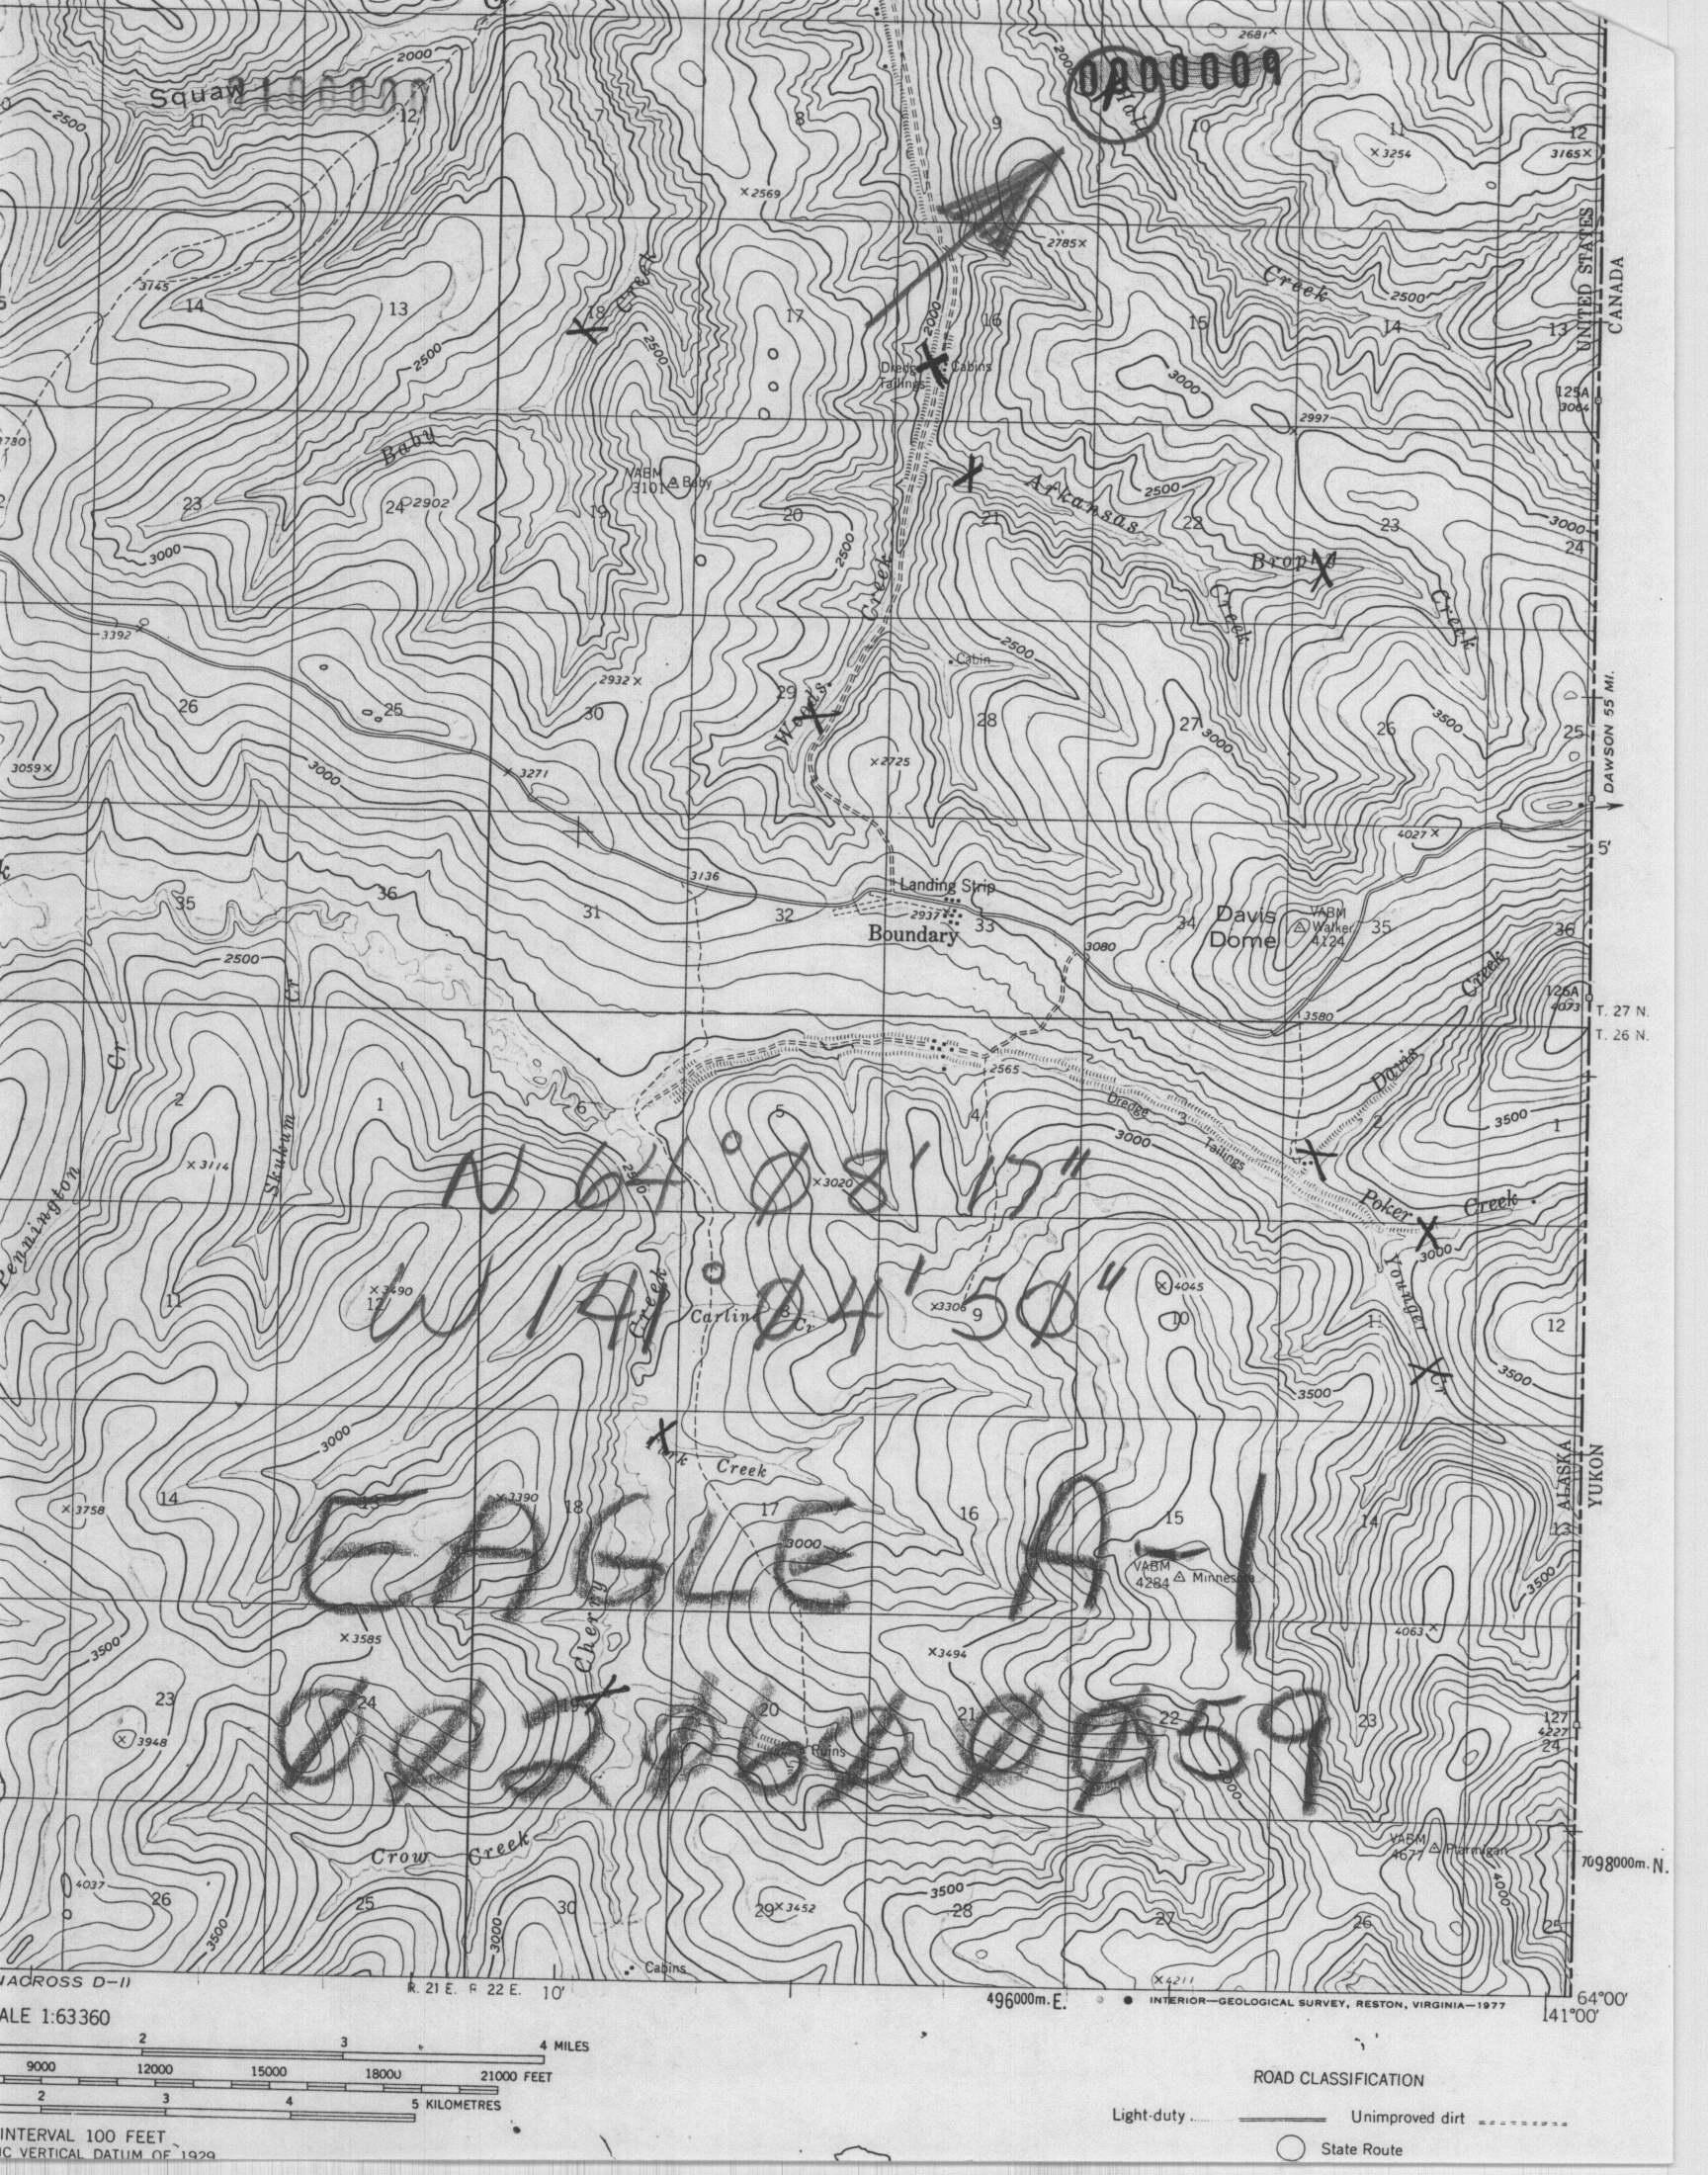 2000
2681
Squaw
0A00009
2500
11
12
7
8
9
10
11
12
3254
3165
2569
UNITED STATES
CANADA
2785
Creek
Creek
2500
3745
14
13
18
17
2000
16
15
14
13
2500
2500
Dredge Tailings
Cabins
3000
125A
3064
2997
Baby
VABM
3101 Baby
23
24
2902
19
20
2500
21
Arkansas
2500
22
23
3000
24
3000
Brophy
Creek
Creek
Creek
3392
Cabin
2500
2932
26
25
30
29
Woods
28
27
3000
26
3500
25
DAWSON 55 MI.
3059
3000
3271
2725
4027
5'
3136
Landing Strip
35
36
31
32
2937
33
34
Davis
Dome
VABM
Walker
4124
35
36
Boundary
3080
2500
Cr
Creek
126A
4073
T. 27 N.
3580
T. 26 N.
Cr
2565
Davis
2
1
6
5
4
Dredge
3
Tailings
2
3500
1
3000
N 64° 08' 17"
3114
Skukum
2500
3020
Pennington
Poker Creek
3000
Younger
3490
4045
W 141° 04' 50"
11
12
Creek
Carlin Cr
8
3306
9
10
11
12
Cr
3500
3500
3000
Creek
ALASKA
YUKON
3758
14
13
3390
18
17
16
15
14
13
EAGLE A-1
3000
VABM
4284 Minnesota
3500
3585
Cherry
3494
4063
3500
23
24
19
20
21
22
23
127
4227
24
3948
Ruins
VABM
4677 Ptarmigan
7098000m. N.
Crow Creek
4037
26
25
30
29
3452
3500
28
27
26
4000
25
3500
3000
Cabins
4211
NACROSS D-11
R. 21 E. R 22 E.
10'
496000m. E.
INTERIOR—GEOLOGICAL SURVEY, RESTON, VIRGINIA—1977
64°00'
141°00'
ALE 1:63360
2 3 4 MILES
9000 12000 15000 18000 21000 FEET
2 3 4 5 KILOMETRES
INTERVAL 100 FEET
IC VERTICAL DATUM OF 1929
ROAD CLASSIFICATION
Light-duty Unimproved dirt
State Route